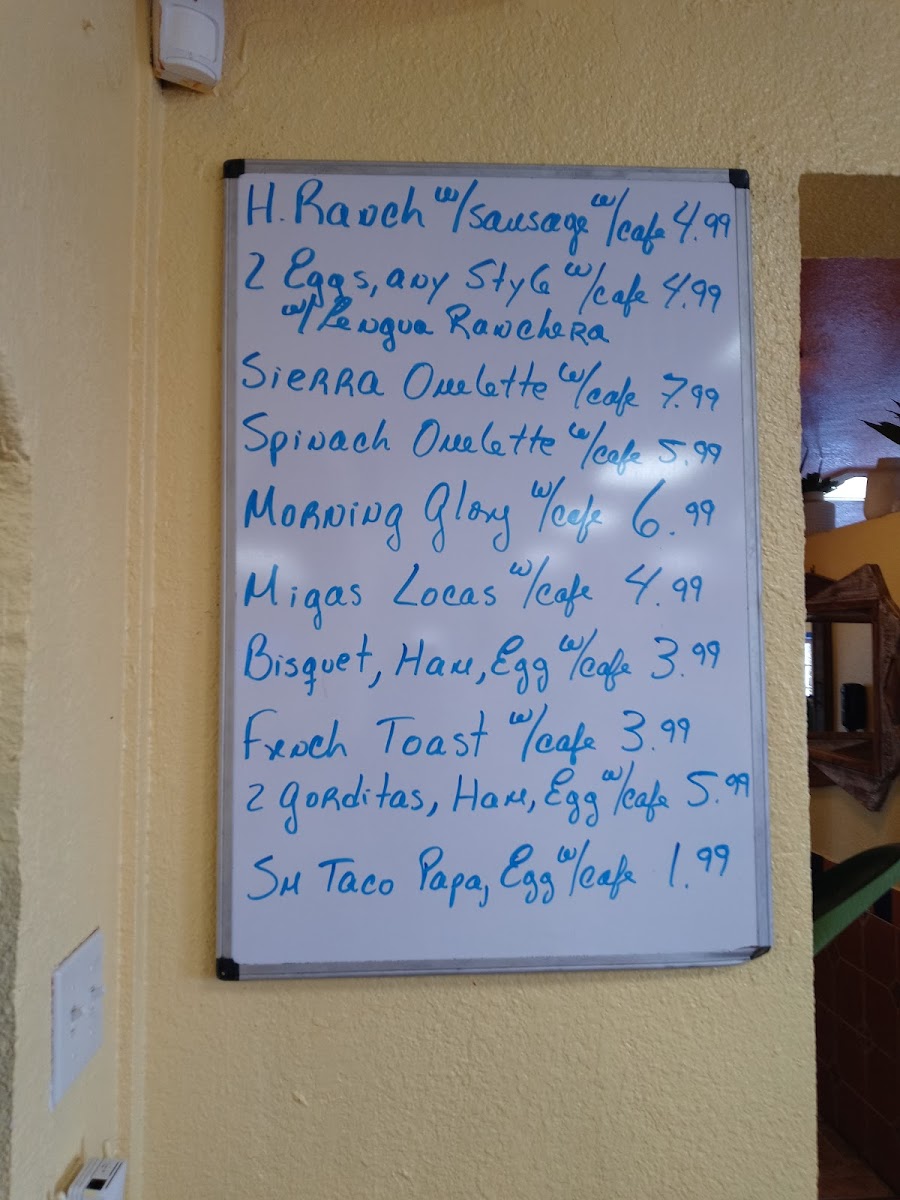 H. Ranch w/sausage w/cafe 4.99
2 Eggs, any Style w/cafe 4.99
w/Lengua Ranchera
Sierra Omelette w/cafe 7.99
Spinach Omelette w/cafe 5.99
Morning Glory w/cafe 6.99
Migas Locas w/cafe 4.99
Bisquet, Ham, Egg w/cafe 3.99
French Toast w/cafe 3.99
2 gorditas, Ham, Egg w/cafe 5.99
Sm Taco Papa, Egg w/cafe 1.99